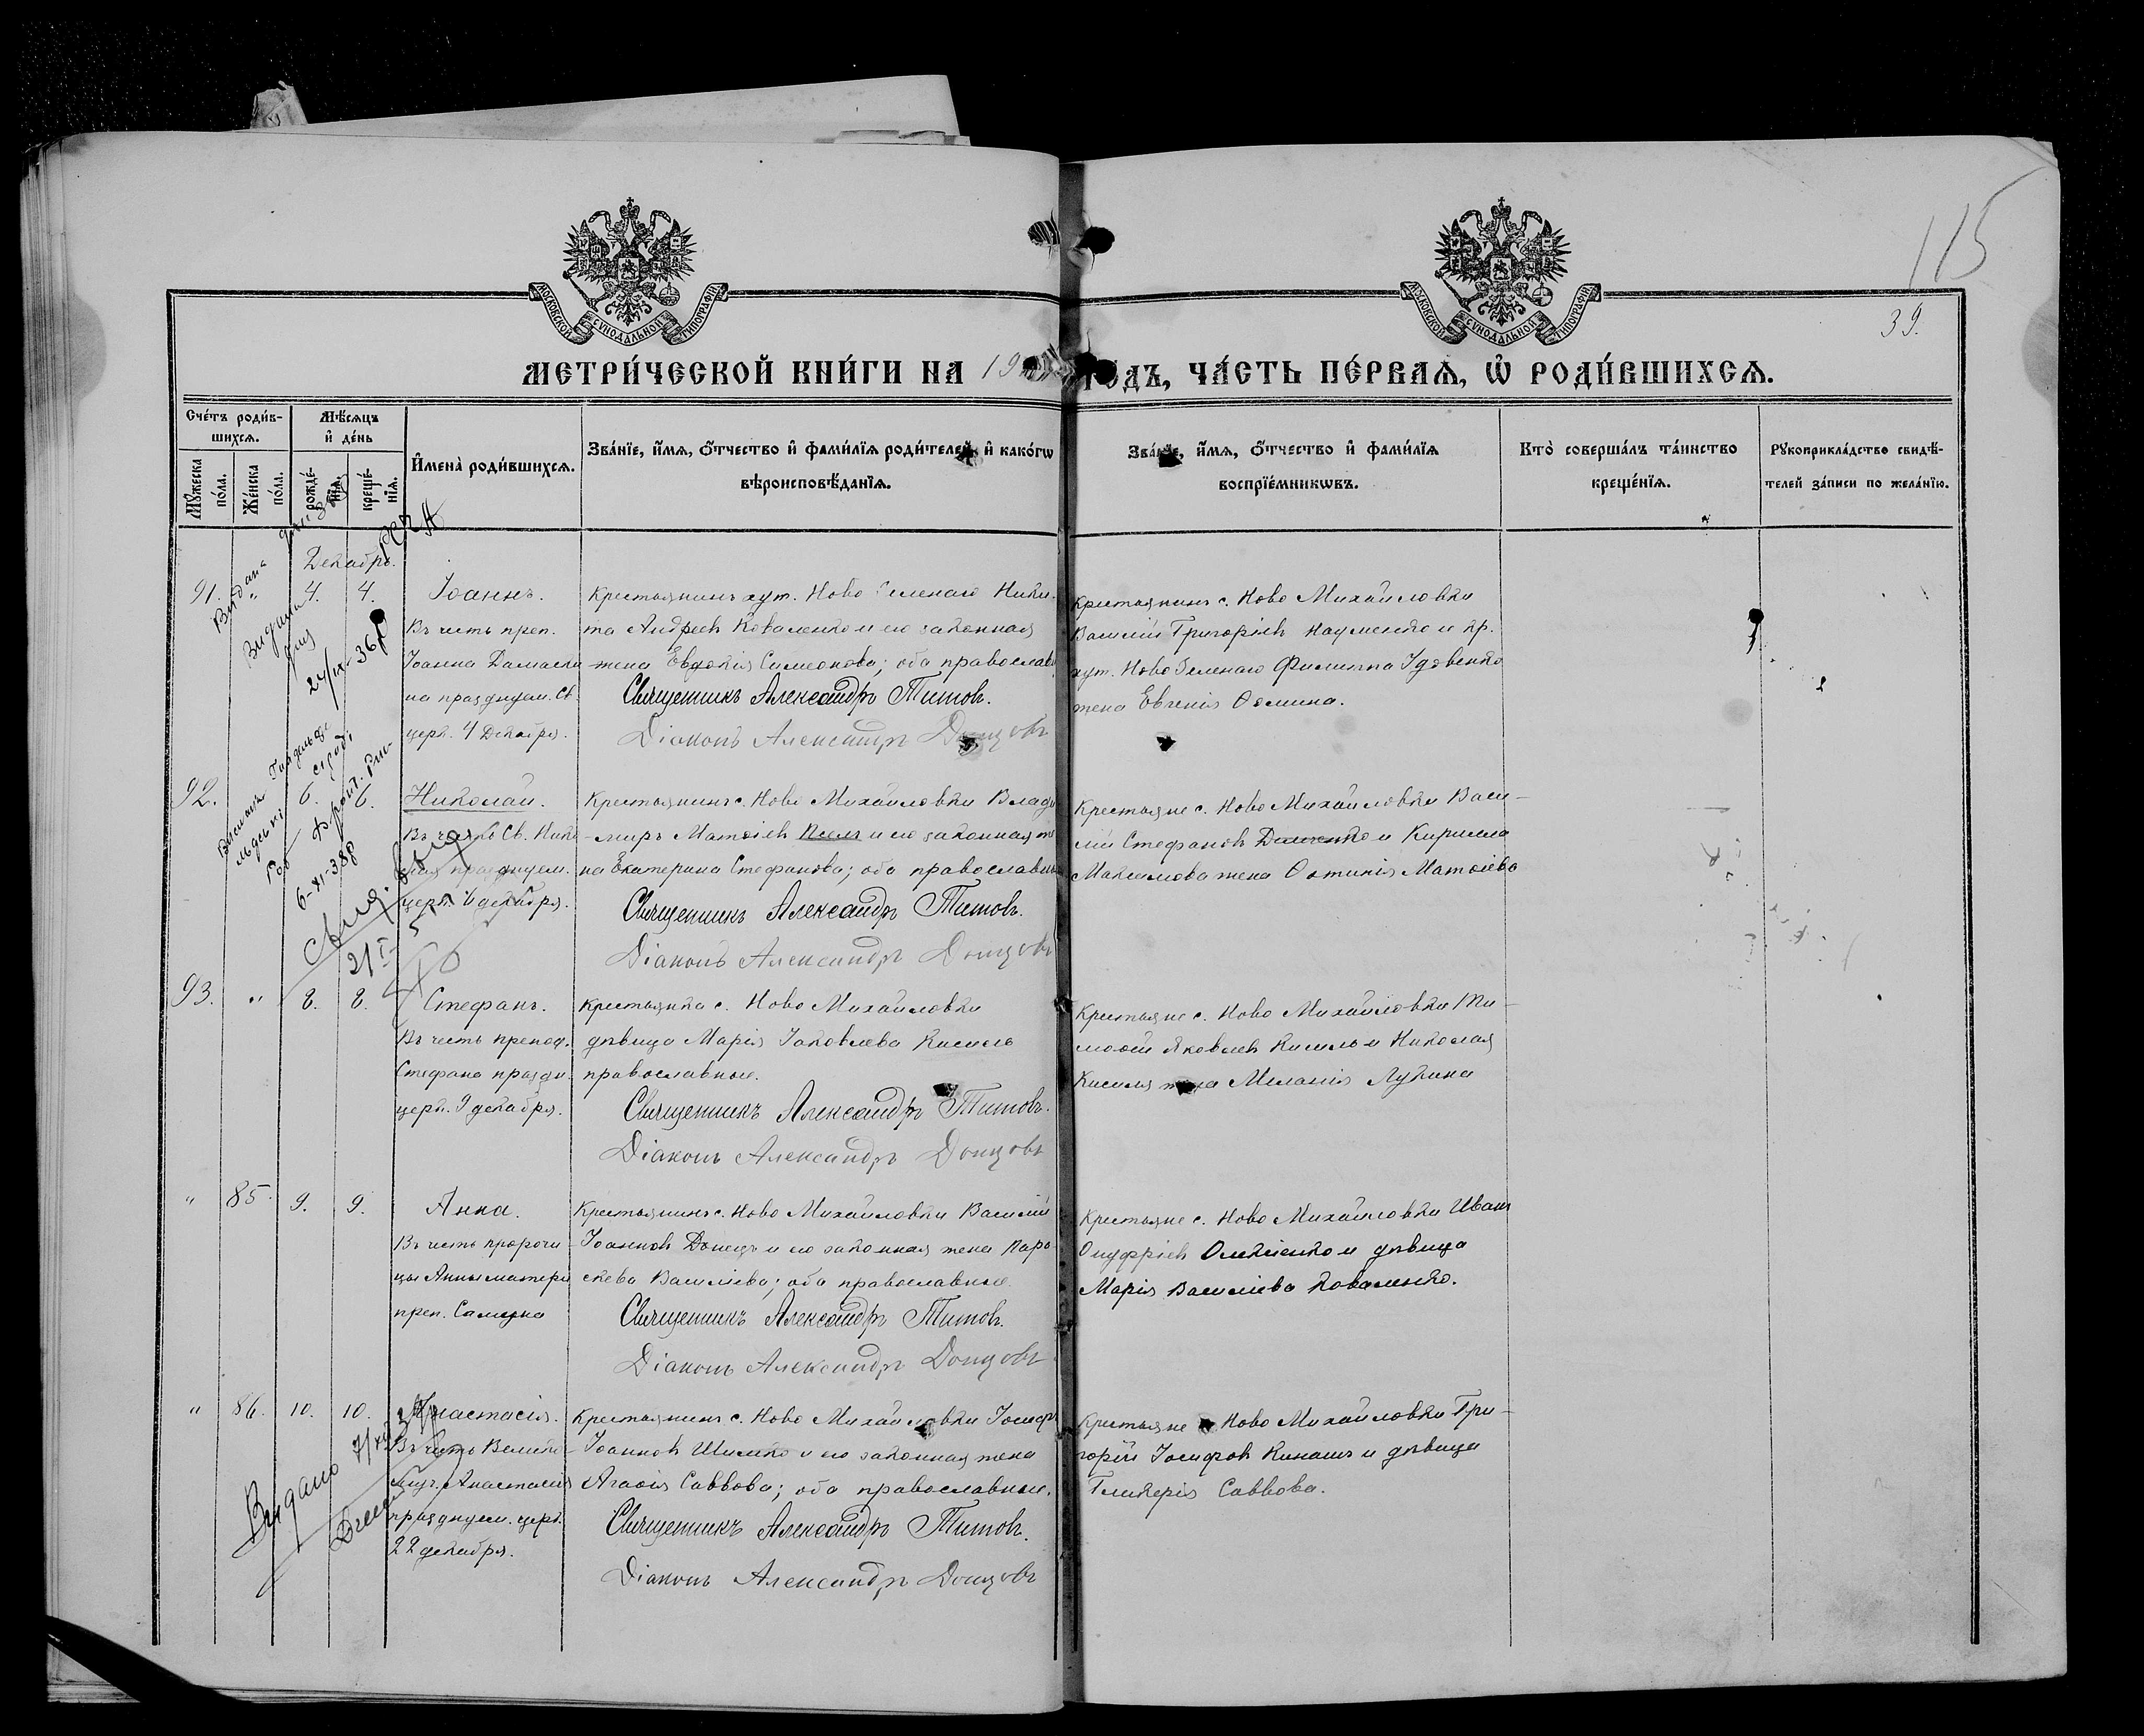 115
39.
МОСКОВСКОЙ СѴНОДАЛЬНОЙ ТИПОГРАФІИ
МОСКОВСКОЙ СѴНОДАЛЬНОЙ ТИПОГРАФІИ
МЕТРИ́ЧЕСКОЙ КНИ́ГИ НА 19 ГОДЪ, ЧА́СТЬ ПЕ́РВАѦ, Ѡ҆ РОДИ́ВШИХСѦ.
Сче́тъ роди́в-
шихсѧ.
Мꙋ́жеска по́ла.
Же́нска по́ла.
Мѣ́сѧцъ
и҆ де́нь
рожде́-
нїѧ.
креще́-
нїѧ.
И҆мена̀ роди́вшихсѧ.
Зва́нїе, и҆́мѧ, ѻ҆́тчество и҆ фами́лїѧ роди́телей, и҆ како́гѡ
вѣроисповѣ́данїѧ.
Зва́нїе, и҆́мѧ, ѻ҆́тчество и҆ фами́лїѧ
воспрїе́мникѡвъ.
Кто̀ соверша́лъ та́инство
креще́нїѧ.
Рꙋкоприкла́дство свидѣ́-
телей за́писи по жела́нїю.
Декабрь.
91. " 4. 4.
Іоаннъ.
Въ честь преп.
Іоанна Дамаски-
на празднуем. Св.
церк. 4 Декабря.
Крестьянинъ хут. Ново Зеленаго Ники-
та Андреевъ Коваленко и его законная
жена Евдокія Симеонова; оба православ
Священникъ Александръ Титовъ.
Діаконъ Александръ Донцовъ
Крестьянинъ с. Ново Михайловки
Василій Григоріевъ Науменко и кр.
хут. Ново Зеленаго Филиппа Удовенко
жена Евгенія Ѳомина.
Видана
24/IX-36р
92. 6. 6.
Николай.
Въ честь Св. Нико-
лая празднуем.
церк. 6 декабря.
Крестьянинъ с. Ново Михайловки Влади
миръ Матѳіевъ и его законная же
на Екатерина Стефанова; оба православны
Священникъ Александръ Титовъ.
Діаконъ Александръ Донцовъ
Крестьяне с. Ново Михайловки Васи-
лій Стефановъ и Кирилла
Максимова жена Ѳотинія Матѳіева
6-XI-38р
93. " 8. 8.
Стефанъ.
Въ честь препод.
Стефана праздн.
церк. 9 декабря.
Крестьянка с. Ново Михайловки
дѣвица Марія Іаковлева Кисиль
православные.
Священникъ Александръ Титовъ.
Діаконъ Александръ Донцовъ
Крестьяне с. Ново Михайловки Ти-
моѳей Яковлевъ Кисиль и Николая
Кисиля жена Меланія Лукина
" 85. 9. 9.
Анна.
Въ честь пророчи-
цы Анны матери
преп. Самуила
Крестьянинъ с. Ново Михайловки Василій
Іоанновъ Донецъ и его законная жена Пара-
скева Василіева; оба православные
Священникъ Александръ Титовъ.
Діаконъ Александръ Донцовъ
Крестьяне с. Ново Михайловки Иванъ
Онуфріевъ и дѣвица
Марія Василіева Коваленко.
" 86. 10. 10.
Анастасія.
Въ честь Велико-
муч. Анастасіи
празднуем. церк.
22 декабря.
Крестьянинъ с. Ново Михайловки Іосифъ
Іоанновъ и его законная жена
Агаѳія Саввова; оба православные.
Священникъ Александръ Титовъ.
Діаконъ Александръ Донцовъ
Крестьяне с. Ново Михайловки Гри-
горій Іосифовъ Кинашъ и дѣвица
Гликерія Саввова.
Видано